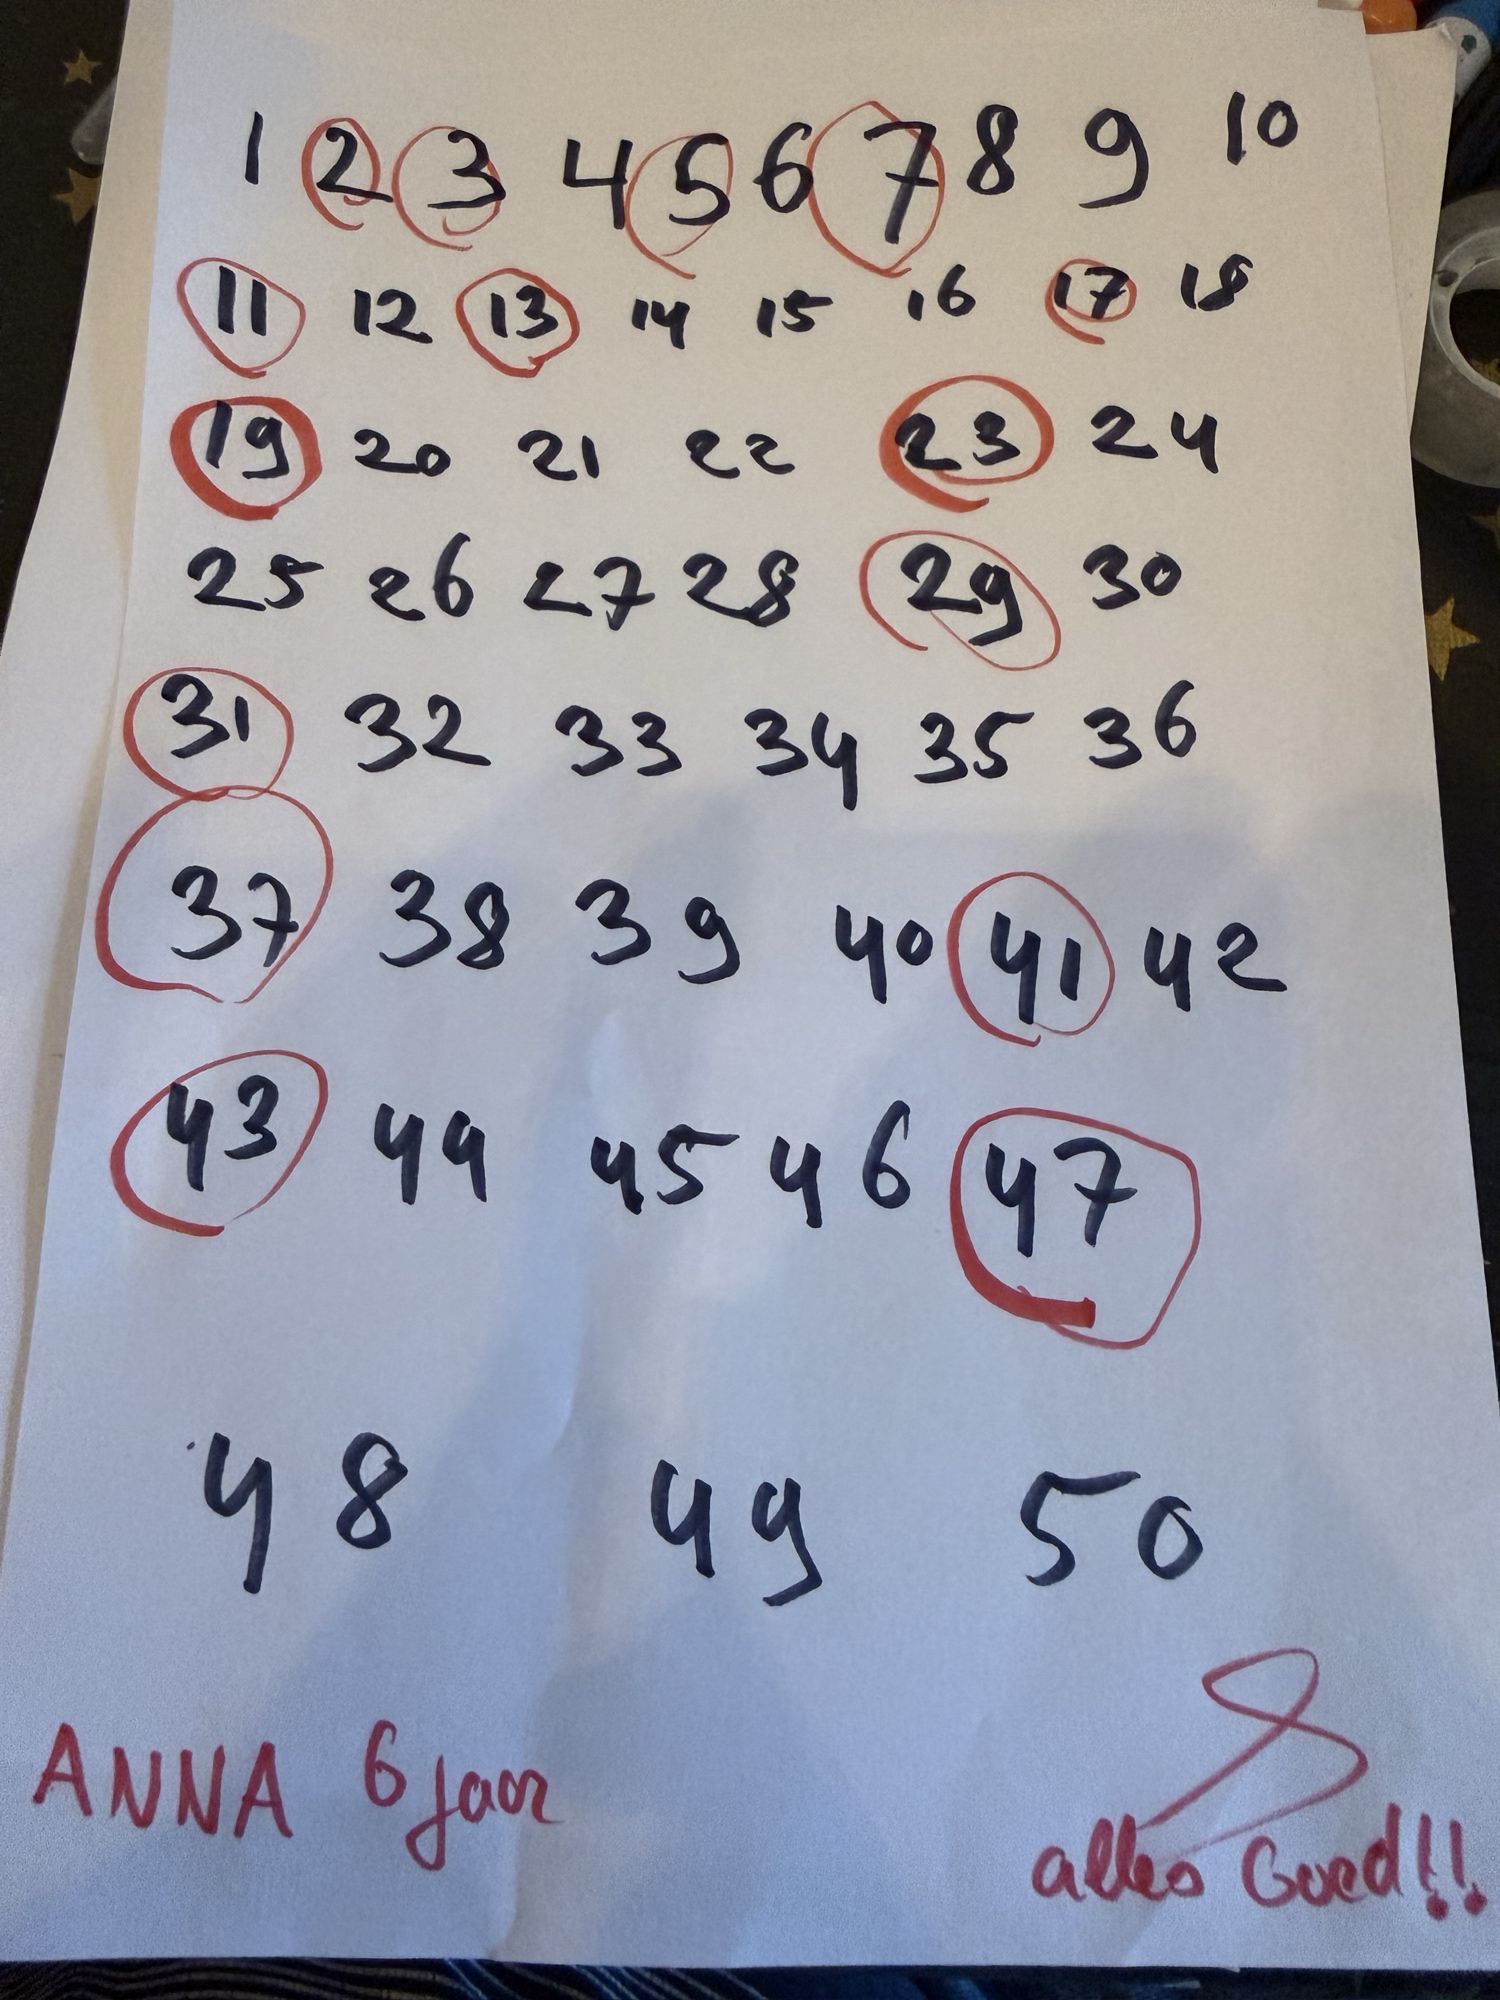 1 2 3 4 5 6 7 8 9 10
11 12 13 14 15 16 17 18
19 20 21 22 23 24
25 26 27 28 29 30
31 32 33 34 35 36
37 38 39 40 41 42
43 44 45 46 47
48 49 50
ANNA 6 jaar
alles Goed!!